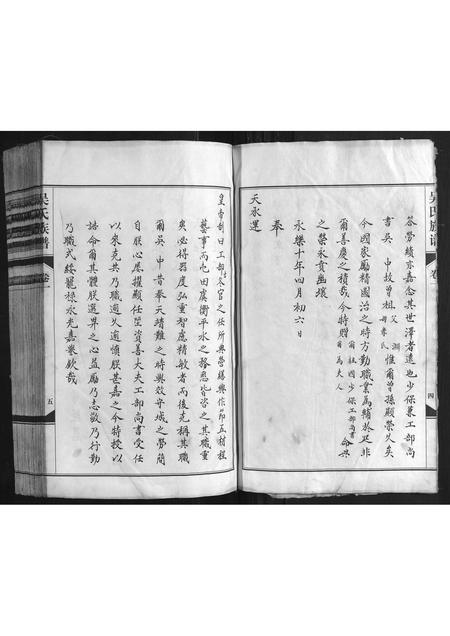 吳氏族譜
卷
四
答勞績亦嘉念其世澤者遠也少保兼工部尚
書吳中故曾祖父淵母李氏惟爾曾孫顯榮久矣
今國家勵精國治之時方勤職業為輔於是非
爾善慶之積哉今特贈爾祖國少保工部尚書爾為夫人命共
之榮永賁幽壤
永樂十年四月初六日
奉
天承運
皇帝制曰工部古冬官之任所與營繕興作節五材程
藝事而屯田虞衡平水之務悉皆咨之其職重
矣必得器度弘重智慮精敏者而後克稱其職
爾吳中昔奉天靖難之時興效守城之勞簡
自朕心屢擢顯任茲資善大夫工部尚書受任
以來克共乃職逾久逾慎朕甚嘉之今特授以
誥命爾其體朕選畀之心益勵乃志敬乃行勤
乃職式綏寵祿永光嘉譽欽哉
吳氏族譜
卷一
五